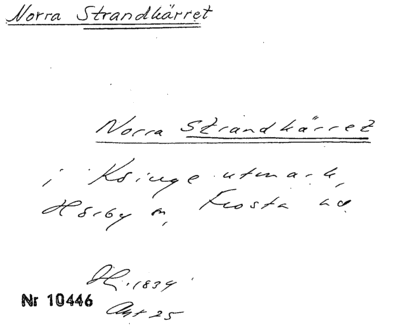 Norra Strandkärret
Norra Strandkärret
i Ksinge utmark,
Hörby sn, Frosta hd.
1839
Nr 10446
Akt 25